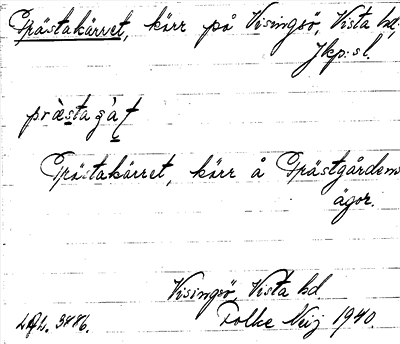 Prästakärret, kärr på Visingsö, Vista hd,
Jkp:sl.
Prästakärret, kärr å Prästgårdens
ägor.
Visingsö, Vista hd.
Folke Neij 1940.